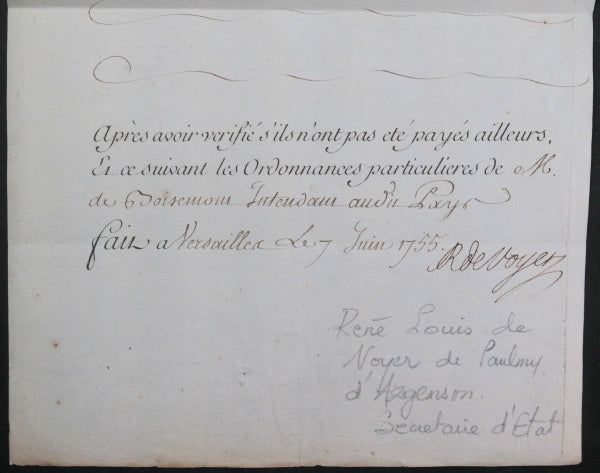 Après avoir verifié s'ils n'ont pas eté payés ailleurs,
Et ce suivant les Ordonnances particulieres de M.
de Boisemont Intendant audit Pays
fait a Versailles Le 7 Juin 1755.
R de Voyer
René Louis de
Voyer de Paulmy
d'Argenson.
Secretaire d'Etat